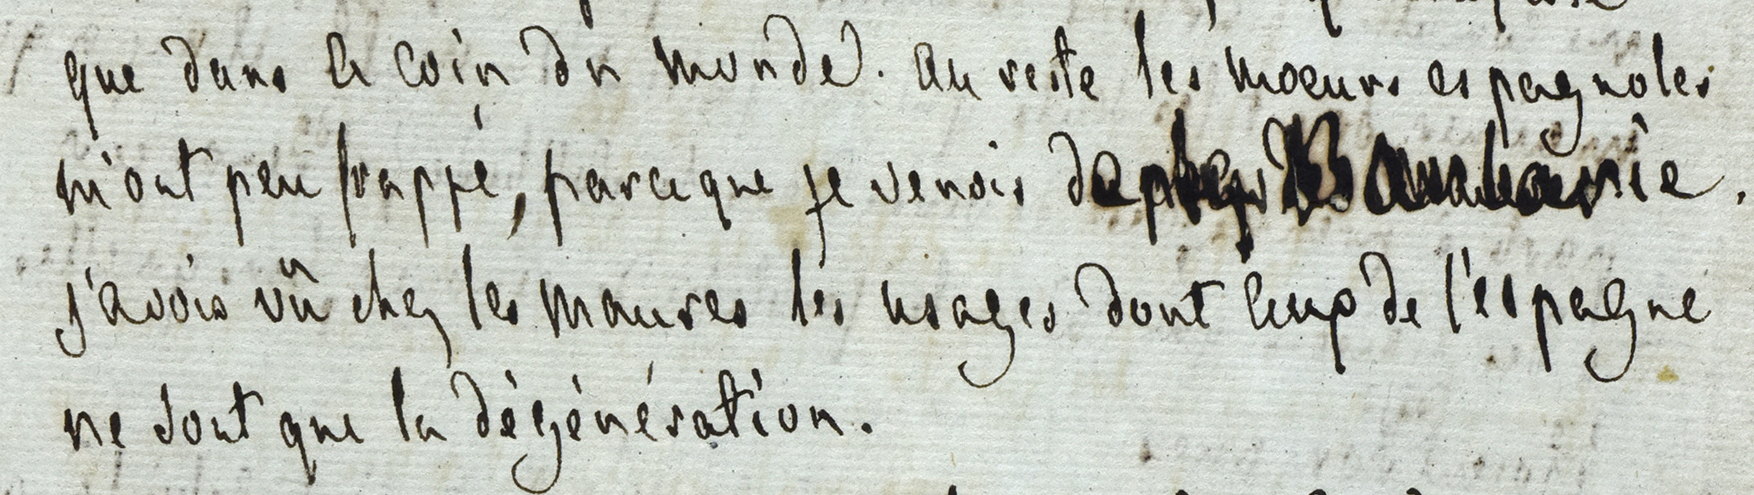 que dans ce coin du monde. au reste les mœurs espagnoles
m'ont peu frappé, parceque je venois de
j'avois vû chez les maures les usages dont ceux de l'espagne
ne sont que la dégénération.